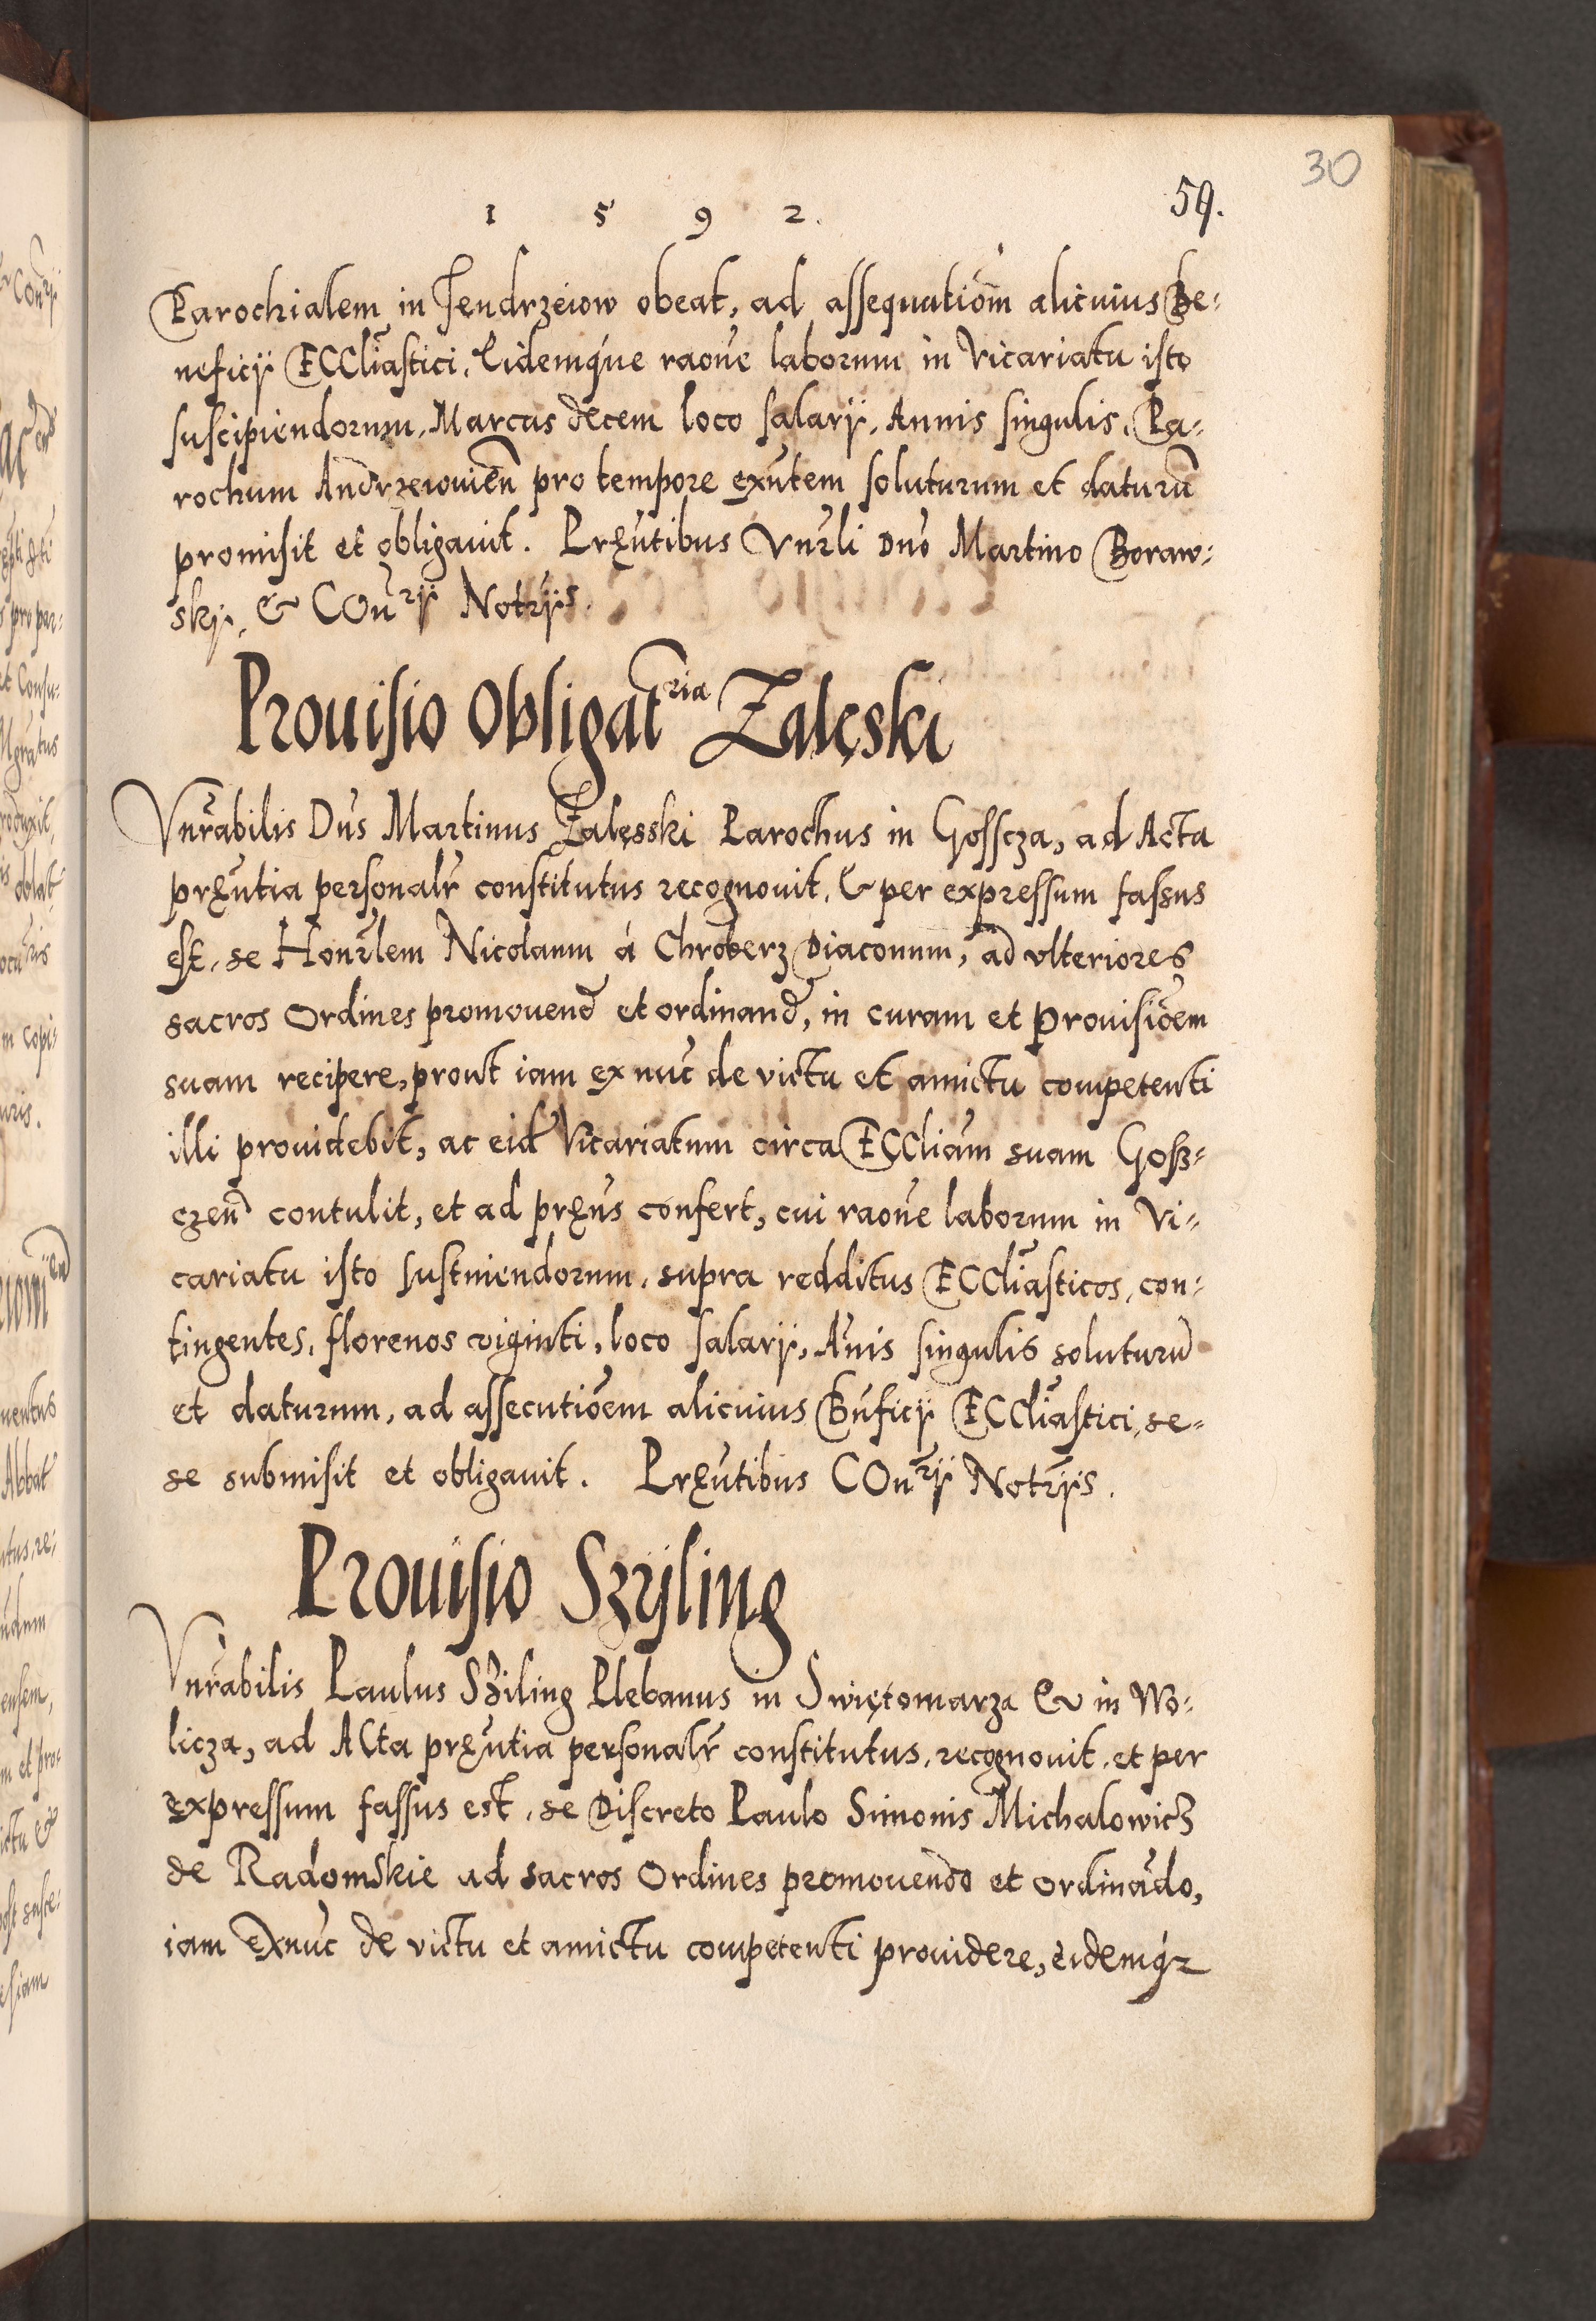 30
1 5 9 2.
59.
Parochialem in Jendrzeiow obeat, ad assequutiōm alicuius Be-
neficij ECCliāstici, Eidemq́ue raōne laborum in Vicariatu isto
suscipiendorum, Marcas decem loco salarij, Annis singulis, Pa-
rochum Andrzeiouień pro tempore exn̄tem soluturum et daturū
promisit et obligauit. Pręn̄tibus Vnr̄li Dnō Martino Boraw-
skij, & COn̄rij Notr̄ijs.
Prouisio Obligat̄ria Zalęski
Vnr̄abilis Dn̄s Martinus Zalęsski Parochus in Gosscza, ad Acta
pręn̄tia personalr̄ constitutus recognouit, & per expressum fassus
est, se Honr̄lem Nicolaum á Chroberz Diaconum, ad vlteriores
sacros Ordines promouend et ordinand, in curam et Prouisiōem
suam recipere, prout iam ex nuc̄ de victu et amictu competenti
illi prouidebit, ac eid Vicariatum circa ECCliām suam Gosz-
czen̄ contulit, et ad pręn̄s confert, cui raōne laborum in Vi-
cariatu isto sustniendorum, supra redditus ECCliāsticos, con-
tingentes, florenos viginti, loco salarij, An̄is singulis soluturū
et daturum, ad assecutiōem alicuius Bn̄ficij ECCliāstici, se-
se submisit et obligauit. Pręn̄tibus COn̄rij Notr̄ijs.
Prouisio Szÿling
Vnr̄abilis Paulus Sziling Plebanus in Swiętomarza & in Wo-
licza, ad ACta pręn̄tia personalr̄ constitutus, recognouit, et per
expressum fassus est, se Discreto Paulo Simonis Michalowicz
de Radomskie ad sacros Ordines promouendo et ordinādo,
iam exnuc̄ de victu et amictu competenti prouidere, eidemq́z